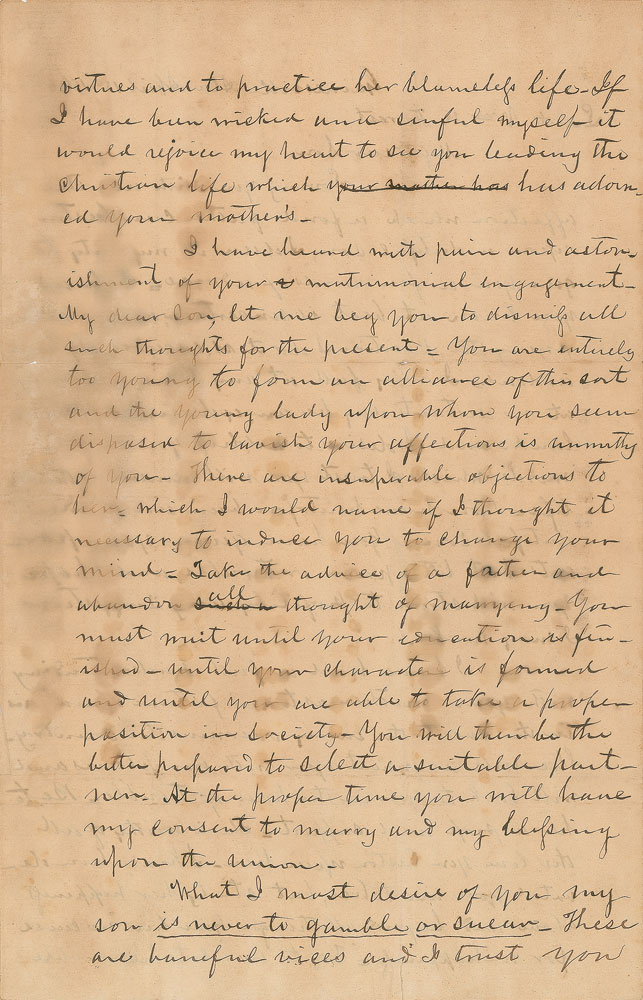 virtues and to practice her blameless life - If
I have been wicked and sinful myself it
would rejoice my heart to see you leading the
Christian life which your mother has has adorn-
ed your mother's -
I have heard with pain and aston-
ishment of your matrimonial engagement -
My dear Son, let me beg you to dismiss all
such thoughts for the present - You are entirely
too young to form an alliance of this sort
and the young lady upon whom you seem
disposed to lavish your affections is unworthy
of you - There are insuperable objections to
her - which I would name if I thought it
necessary to induce you to change your
mind - Take the advice of a father and
abandon such a all thought of marrying - You
must wait until your education is fin-
ished - until your character is formed
and until you are able to take a proper
position in society - You will then be the
better prepared to select a suitable part-
ner - At the proper time you will have
my consent to marry and my blessing
upon the union -
What I most desire of you my
son is never to gamble or swear - These
are baneful vices and I trust you